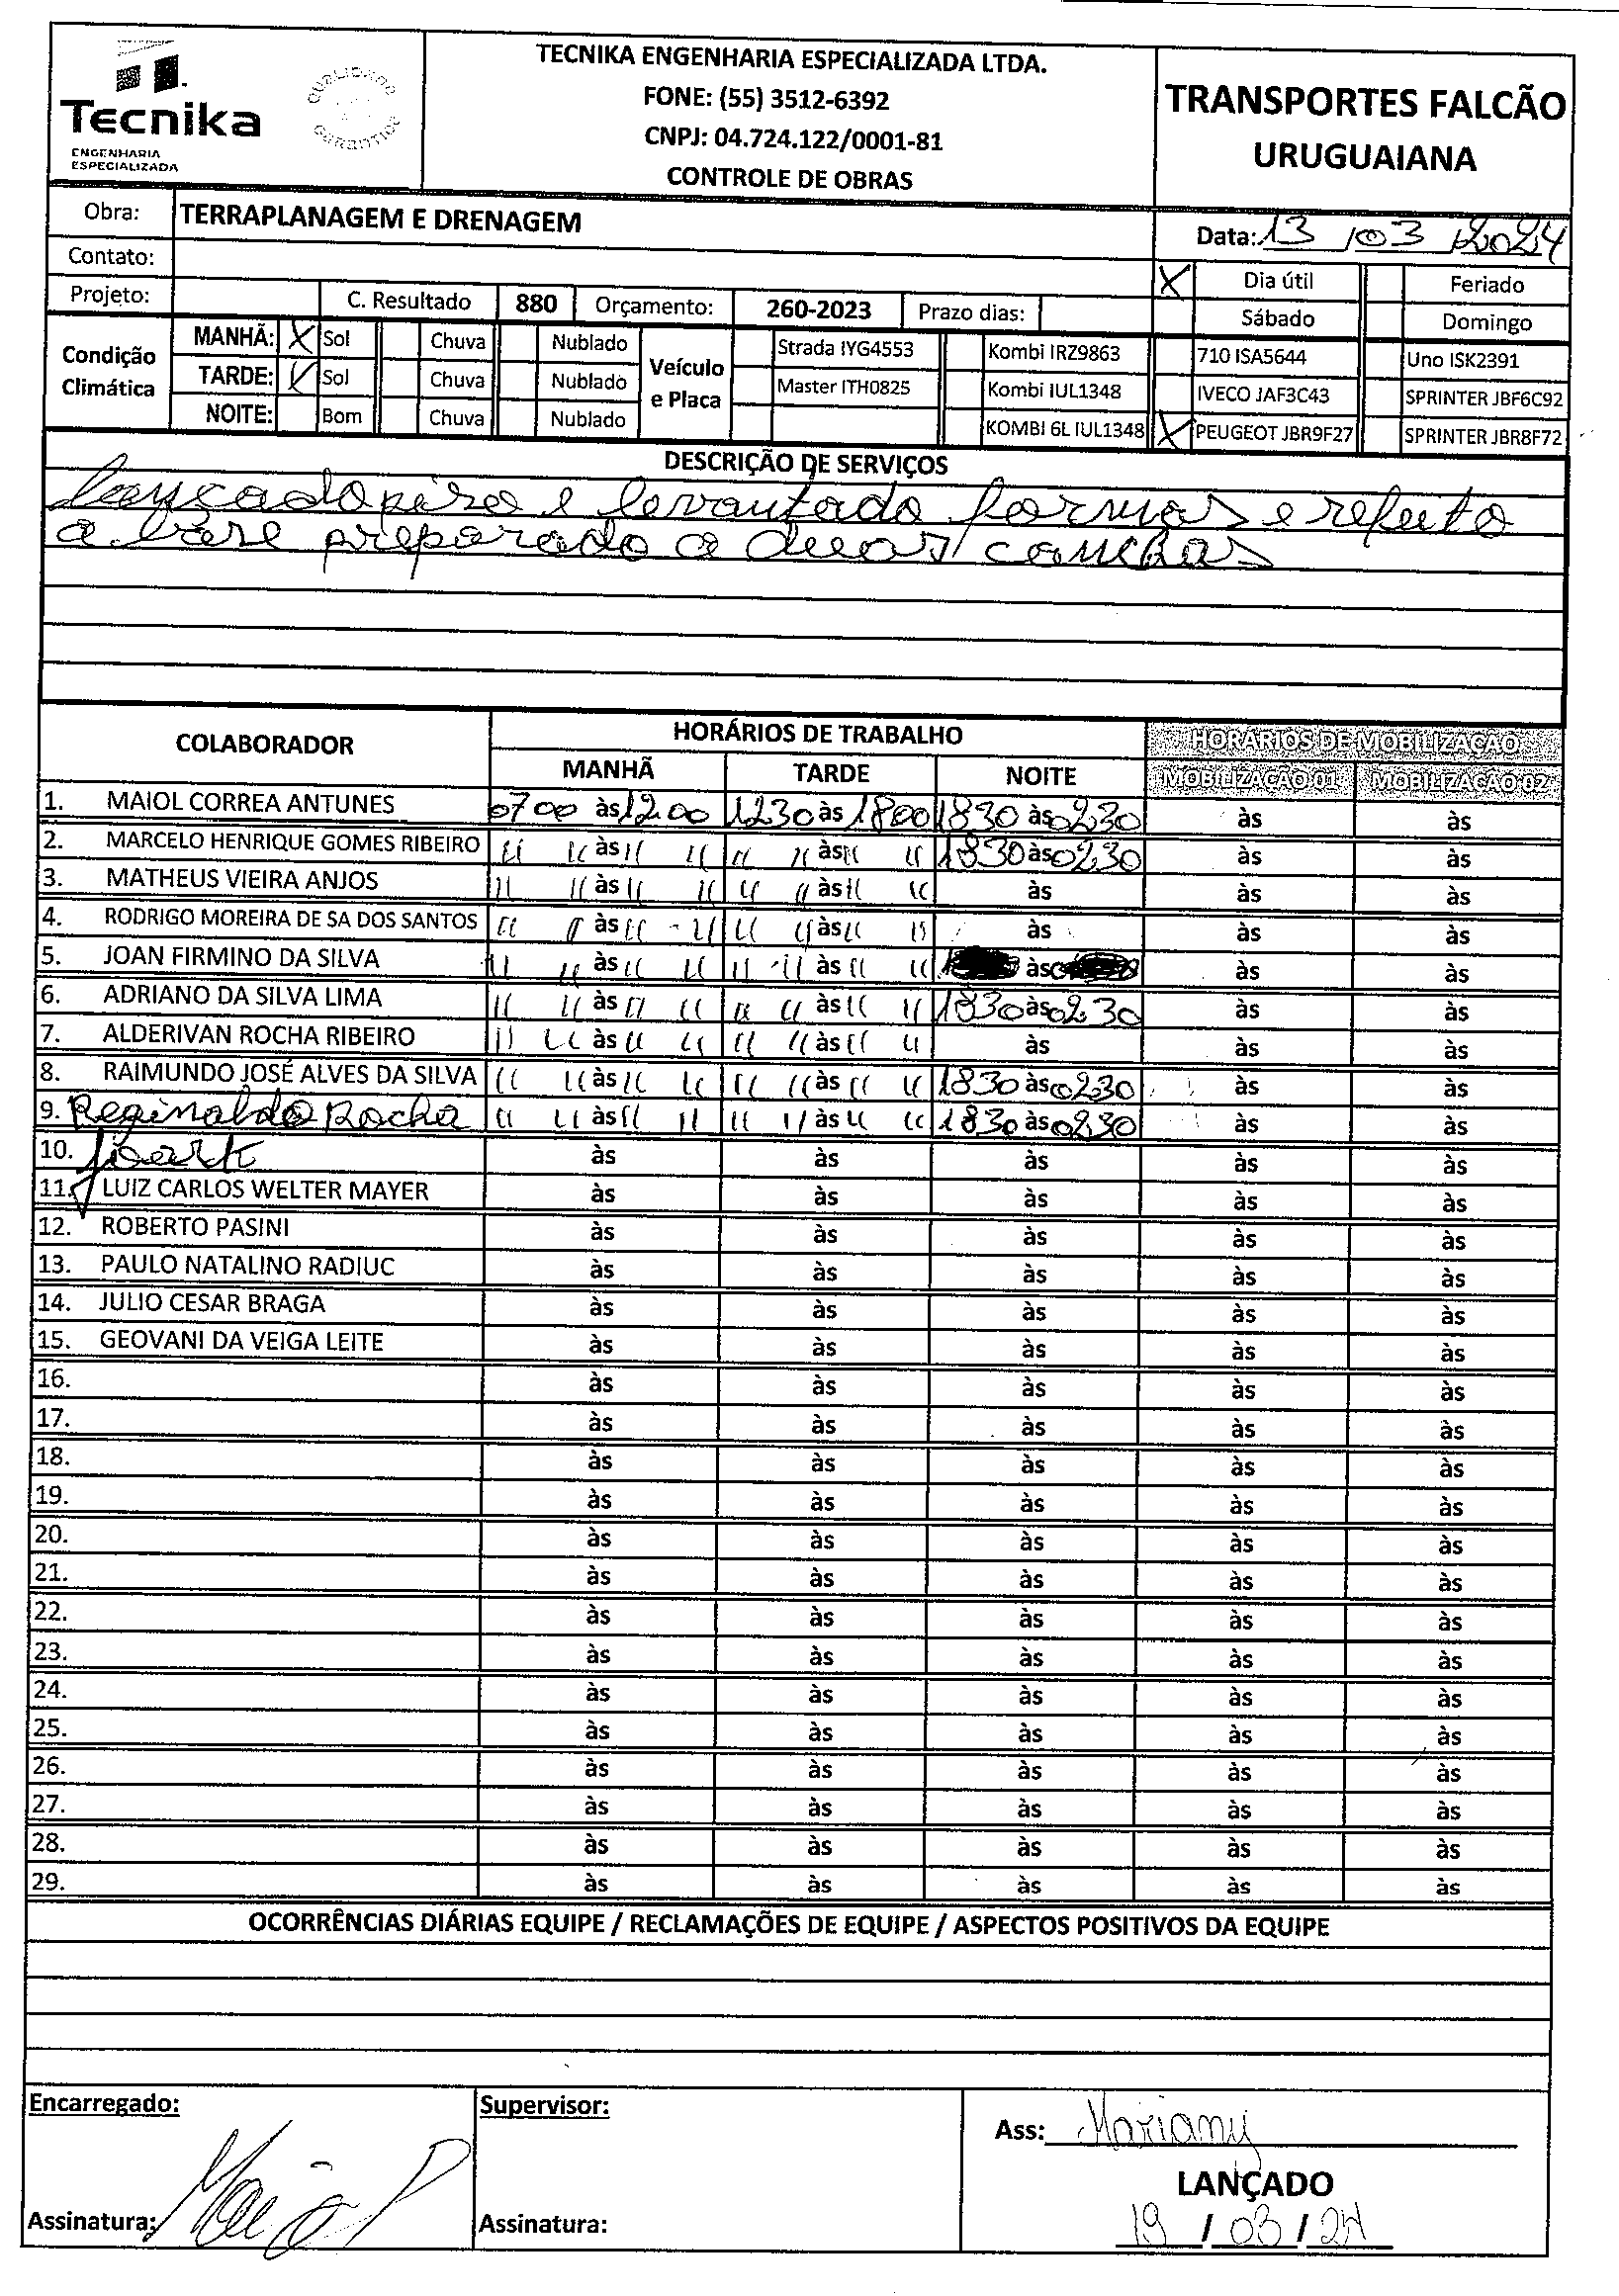 Tecnika
ENGENHARIA
ESPECIALIZADA
QUALIDADE
GARANTIDA
TECNIKA ENGENHARIA ESPECIALIZADA LTDA.
FONE: (55) 3512-6392
CNPJ: 04.724.122/0001-81
CONTROLE DE OBRAS
TRANSPORTES FALCÃO
URUGUAIANA
Obra: TERRAPLANAGEM E DRENAGEM
Data: 13 / 03 / 2024
Contato:
X Dia útil Feriado
Projeto: C. Resultado 880 Orçamento: 260-2023 Prazo dias:
Sábado Domingo
Condição Climática
MANHÃ: X Sol Chuva Nublado
TARDE: X Sol Chuva Nublado
NOITE: Bom Chuva Nublado
Veículo e Placa
Strada IYG4553 Kombi IRZ9863 710 ISA5644 Uno ISK2391
Master ITH0825 Kombi IUL1348 IVECO JAF3C43 SPRINTER JBF6C92
KOMBI 6L IUL1348 X PEUGEOT JBR9F27 SPRINTER JBR8F72
DESCRIÇÃO DE SERVIÇOS
lançado piso e levantado formas e refeito
a base preparado a duas canchas
COLABORADOR HORÁRIOS DE TRABALHO HORÁRIOS DE MOBILIZAÇÃO
MANHÃ TARDE NOITE MOBILIZAÇÃO 01 MOBILIZAÇÃO 02
1. MAIOL CORREA ANTUNES 0700 às 1200 1230 às 1800 1830 às 0230 às às
2. MARCELO HENRIQUE GOMES RIBEIRO " " às " " " " às " " 1830 às 0230 às às
3. MATHEUS VIEIRA ANJOS " " às " " " " às " " às às às
4. RODRIGO MOREIRA DE SA DOS SANTOS " " às " " " " às " " às às às
5. JOAN FIRMINO DA SILVA " " às " " " " às " " às às às
6. ADRIANO DA SILVA LIMA " " às " " " " às " " 1830 às 0230 às às
7. ALDERIVAN ROCHA RIBEIRO " " às " " " " às " " às às às
8. RAIMUNDO JOSÉ ALVES DA SILVA " " às " " " " às " " 1830 às 0230 às às
9. Reginaldo Rocha " " às " " " " às " " 1830 às 0230 às às
10. às às às às às
11. LUIZ CARLOS WELTER MAYER às às às às às
12. ROBERTO PASINI às às às às às
13. PAULO NATALINO RADIUC às às às às às
14. JULIO CESAR BRAGA às às às às às
15. GEOVANI DA VEIGA LEITE às às às às às
16. às às às às às
17. às às às às às
18. às às às às às
19. às às às às às
20. às às às às às
21. às às às às às
22. às às às às às
23. às às às às às
24. às às às às às
25. às às às às às
26. às às às às às
27. às às às às às
28. às às às às às
29. às às às às às
OCORRÊNCIAS DIÁRIAS EQUIPE / RECLAMAÇÕES DE EQUIPE / ASPECTOS POSITIVOS DA EQUIPE
Encarregado: Supervisor:
Ass: Mariany
LANÇADO
Assinatura: Assinatura:
19 / 03 / 24